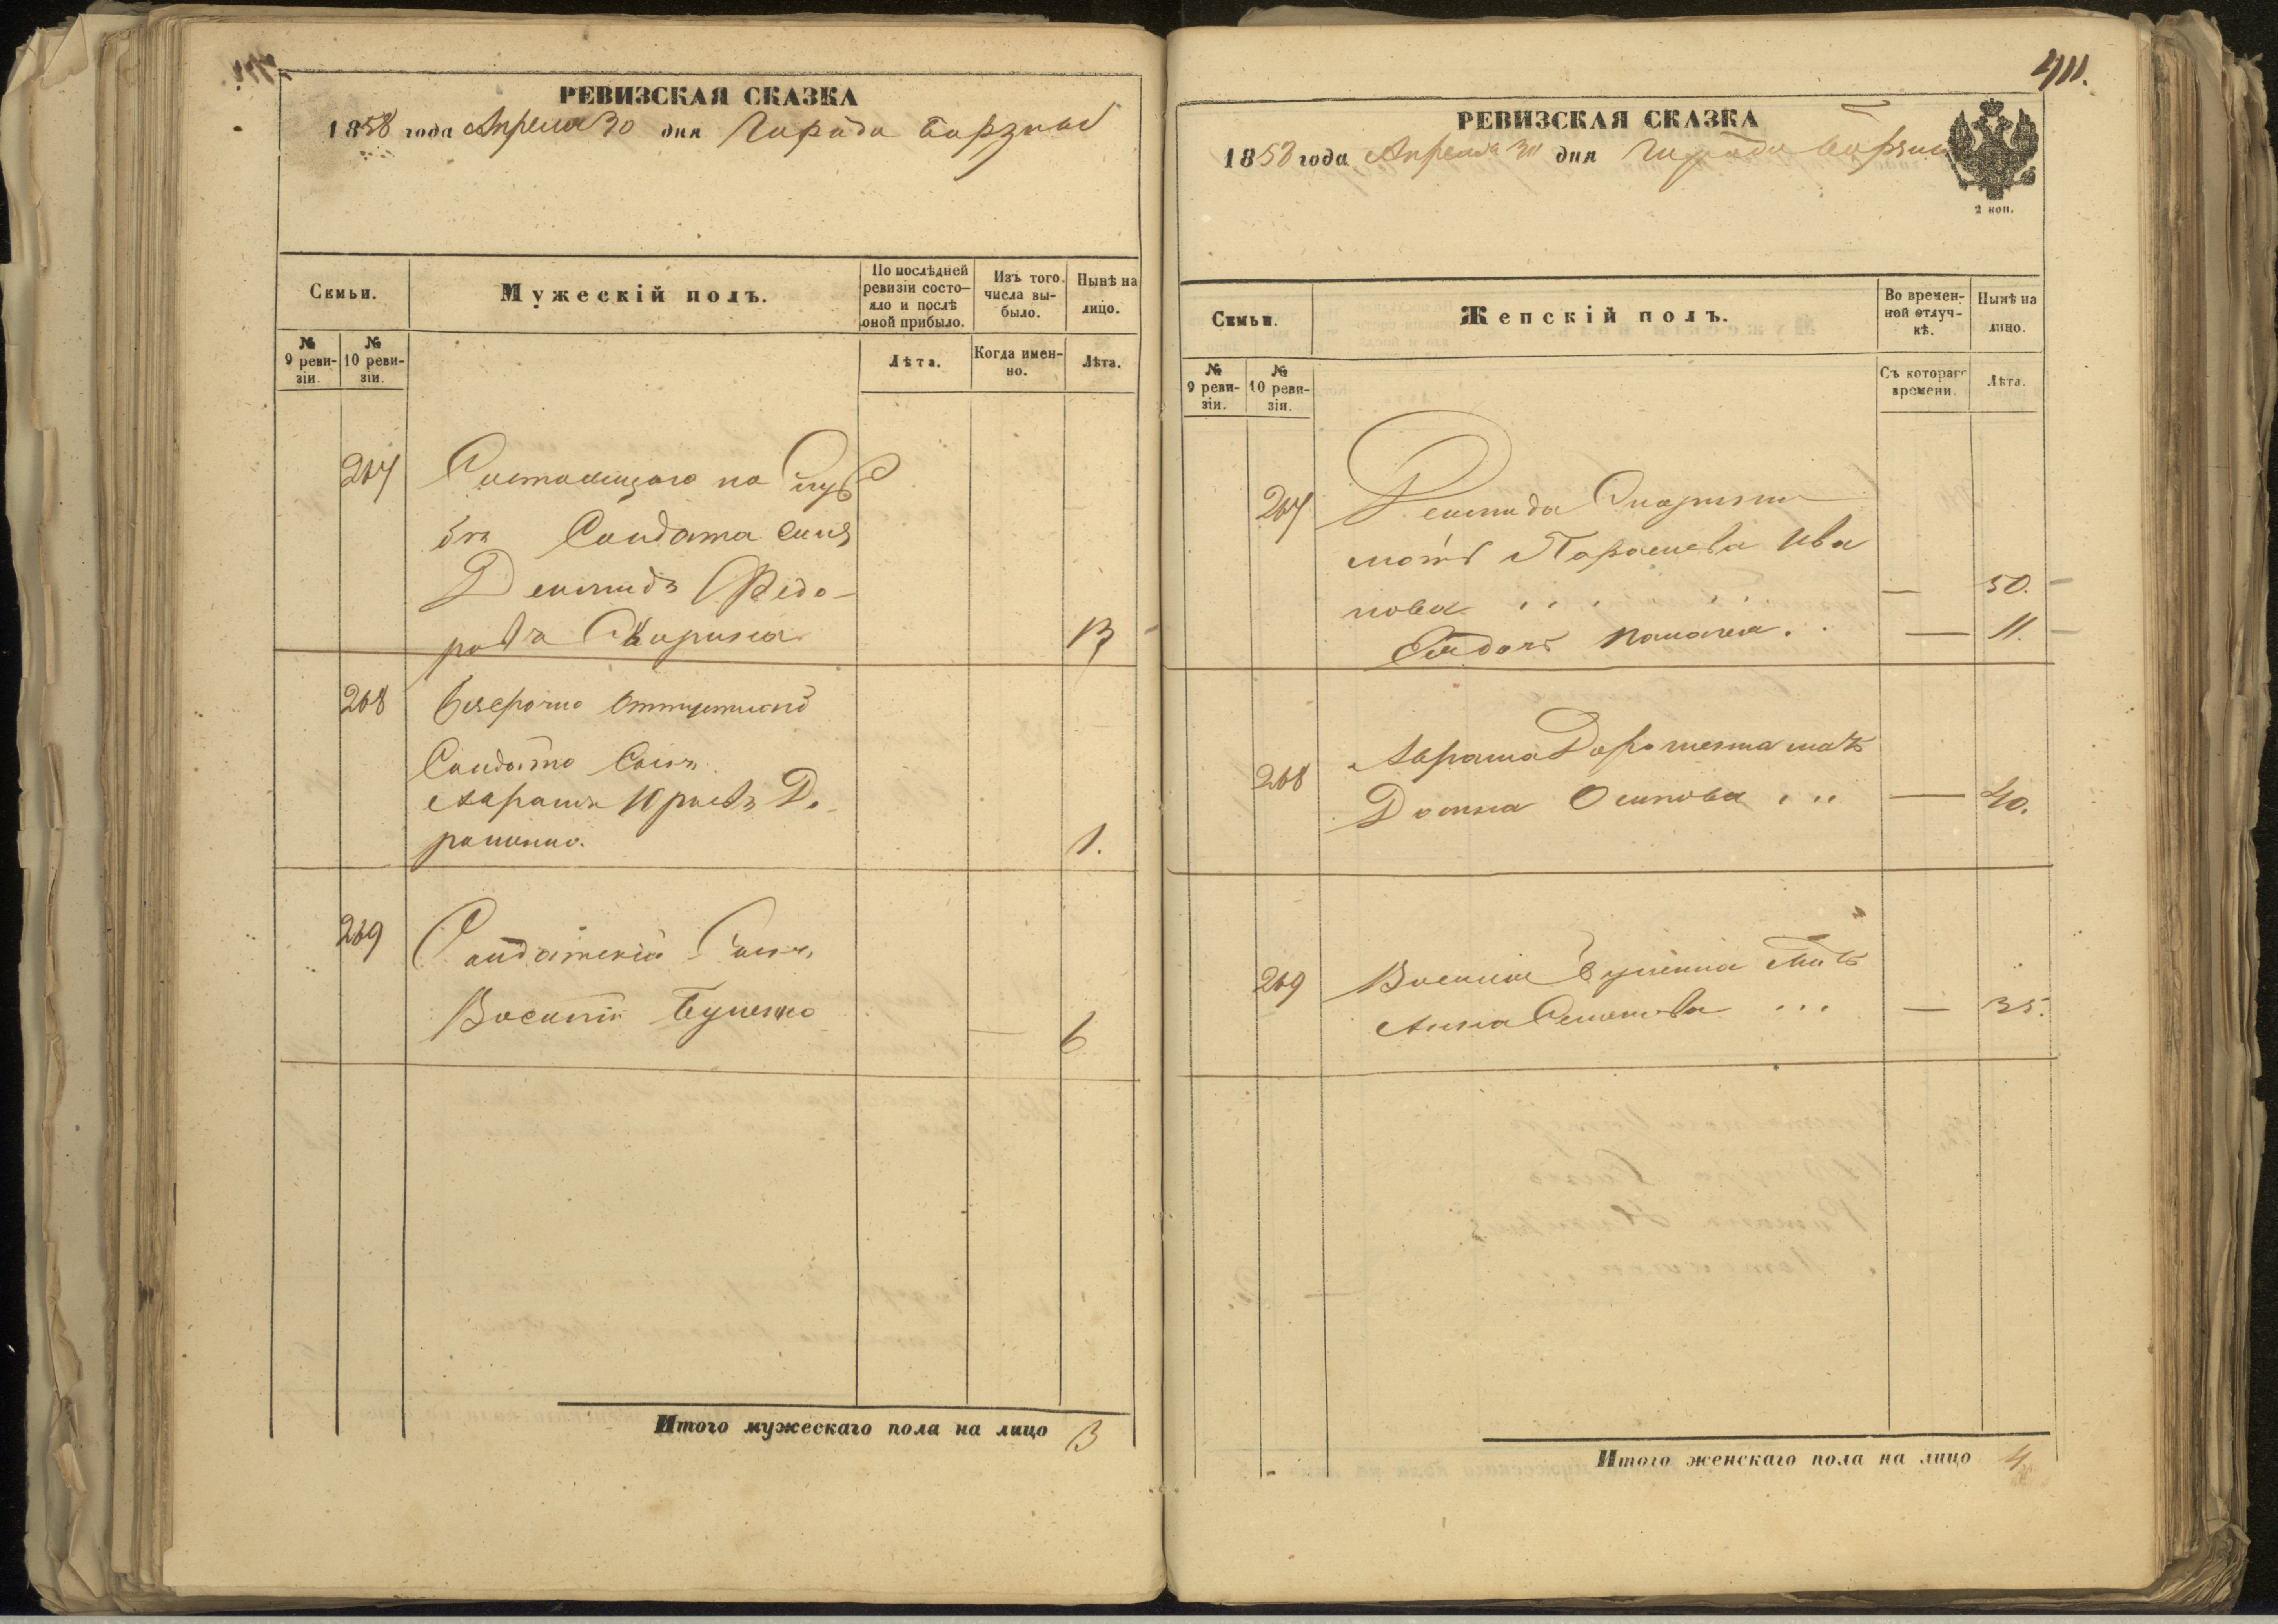 РЕВИЗСКАЯ СКАЗКА
1858 года Апреля 30 дня Города Борзны
Семьи.
Мужескій полъ.
По послѣдней ревизіи состо-
яло и послѣ
оной прибыло.
Изъ того числа вы-
было.
Нынѣ на лицо.
№ 9 реви-
зіи.
№ 10 реви-
зіи.
Лѣта.
Когда имен-
но.
Лѣта.
267 Состоящаго на Служ
бѣ Солдата Сынъ
Демидъ Федо-
ровъ Скорина 13
268 безсрочно отпускнаго
Солдата Сынъ
Аврамъ Юрьевъ До-
рошенко. 1.
269 Солдатскій Сынъ
Василій Буценко 6
Итого мужескаго пола на лицо 3
411.
РЕВИЗСКАЯ СКАЗКА
1858 года Апреля 30 дня Города Борзны
2 коп.
Семьи.
Женскій полъ.
Во времен-
ной отлуч-
кѣ.
Нынѣ на лицо.
№ 9 реви-
зіи.
№ 10 реви-
зіи.
Съ котораго времени.
Лѣта.
267 Демида Скорины
мать Парасковья Ива
нова — 50.
— 11.
268 Аврама Дорошенка мать
Домна Осипова — 40.
269 Василія Буценка Мать
Анна Семенова — 35.
Итого женскаго пола на лицо 4